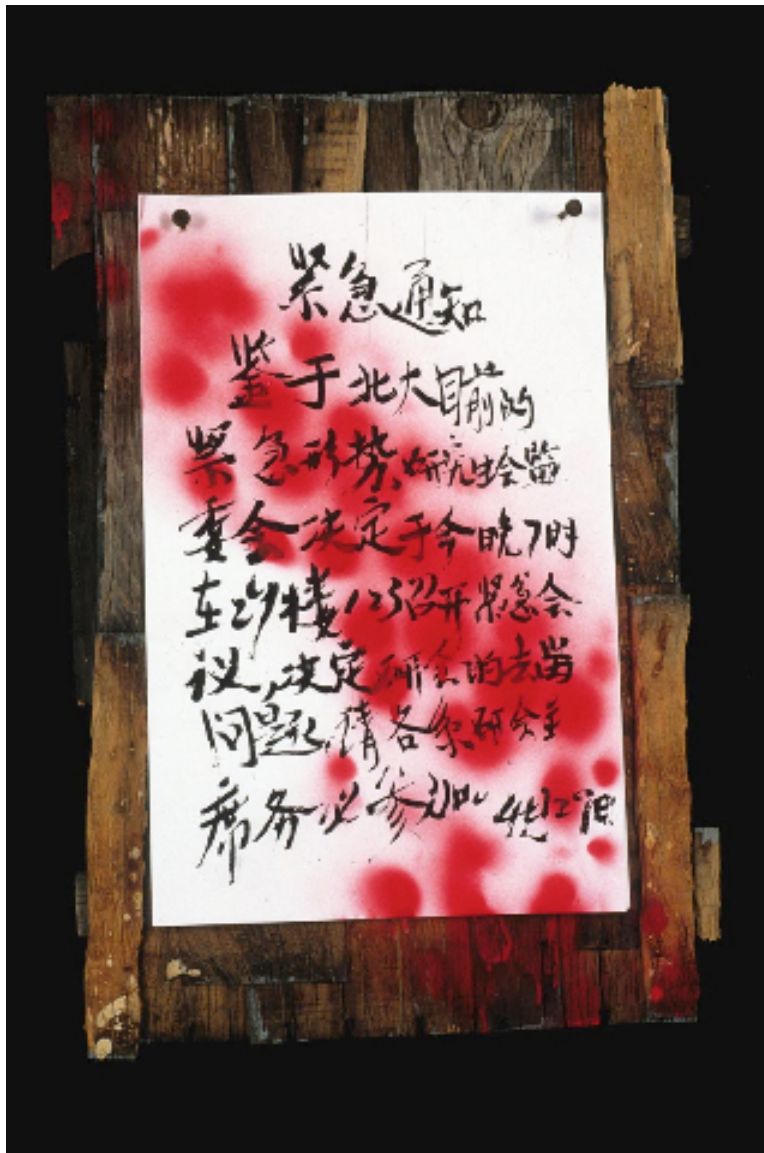 紧急通知
鉴于北大目前的
紧急形势,研究生会常
委会决定于今晚7时
在29楼123召开紧急会
议,决定研会的去留
问题,请各系研会主
席务必参加